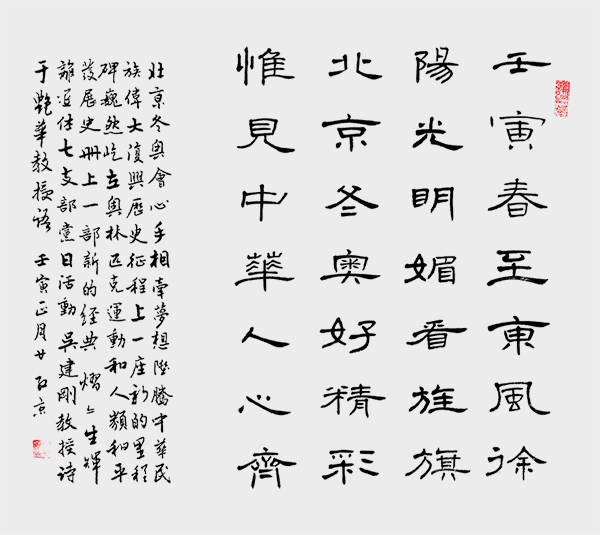 壬寅春至東風徐
陽光明媚看旌旗
北京冬奧好精彩
惟見中華人心齊
北京冬奧會心手相牽夢想騰中華民
族偉大復興歷史征程上一座新的里程
碑巍然屹立奧林匹克運動和人類和平
發展史冊上一部新的經典熠〻生輝
離退休七支部黨日活動 吳建剛教授詩
于艷華教授語 壬寅正月廿 京